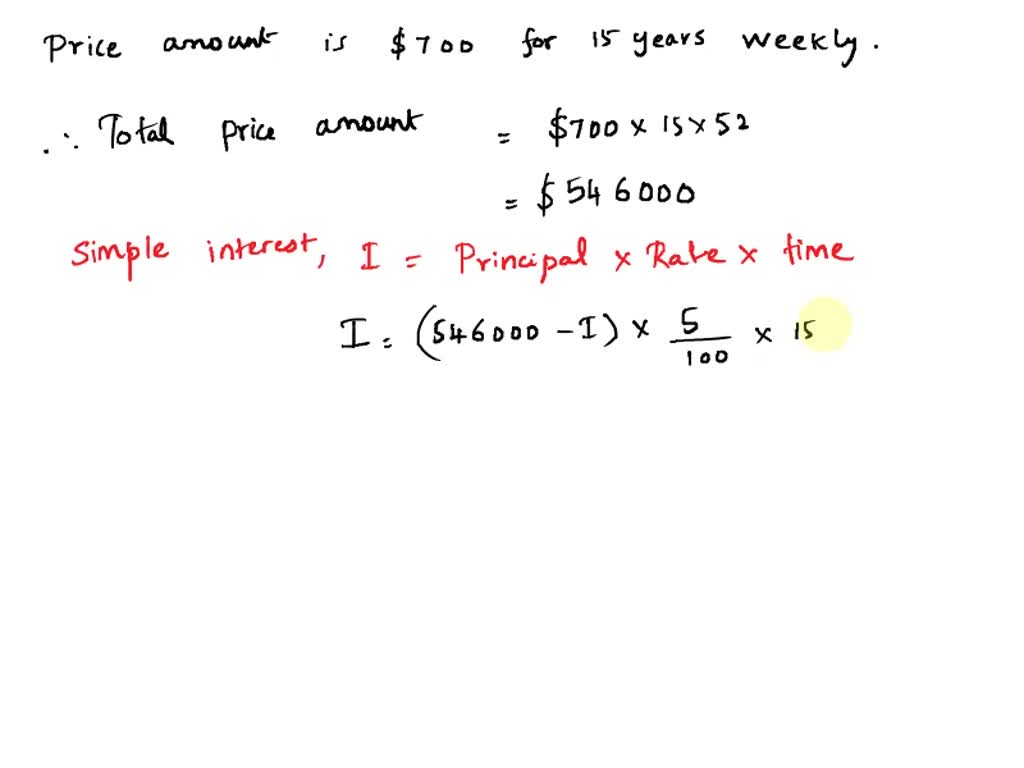 Price amount is $700 for 15 years weekly.
∴ Total price amount = $700 × 15 × 52
= $546000
Simple interest, I = Principal × Rate × time
I = (546000 - I) × 5/100 × 15